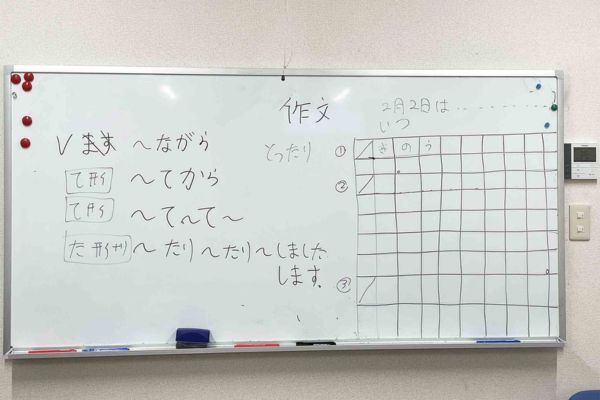 作文
V ます ～ながら
て形 ～てから
て形 ～て～て～
た形 ～たり～たり～しました
します
2月2日は..........
いつ
① きのう
②
③